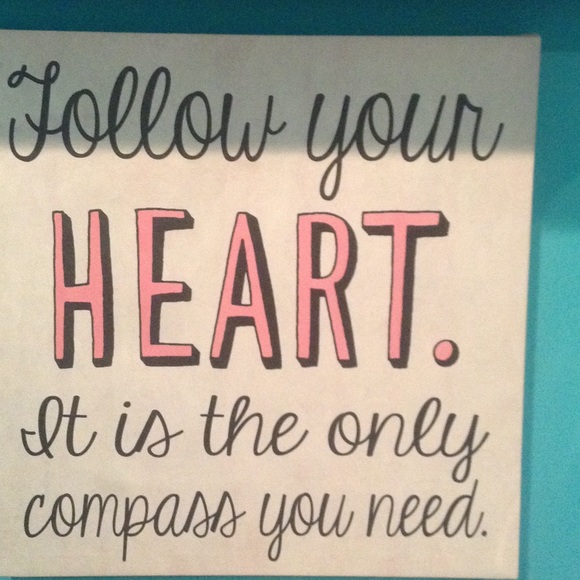 Follow your
HEART.
It is the only
compass you need.